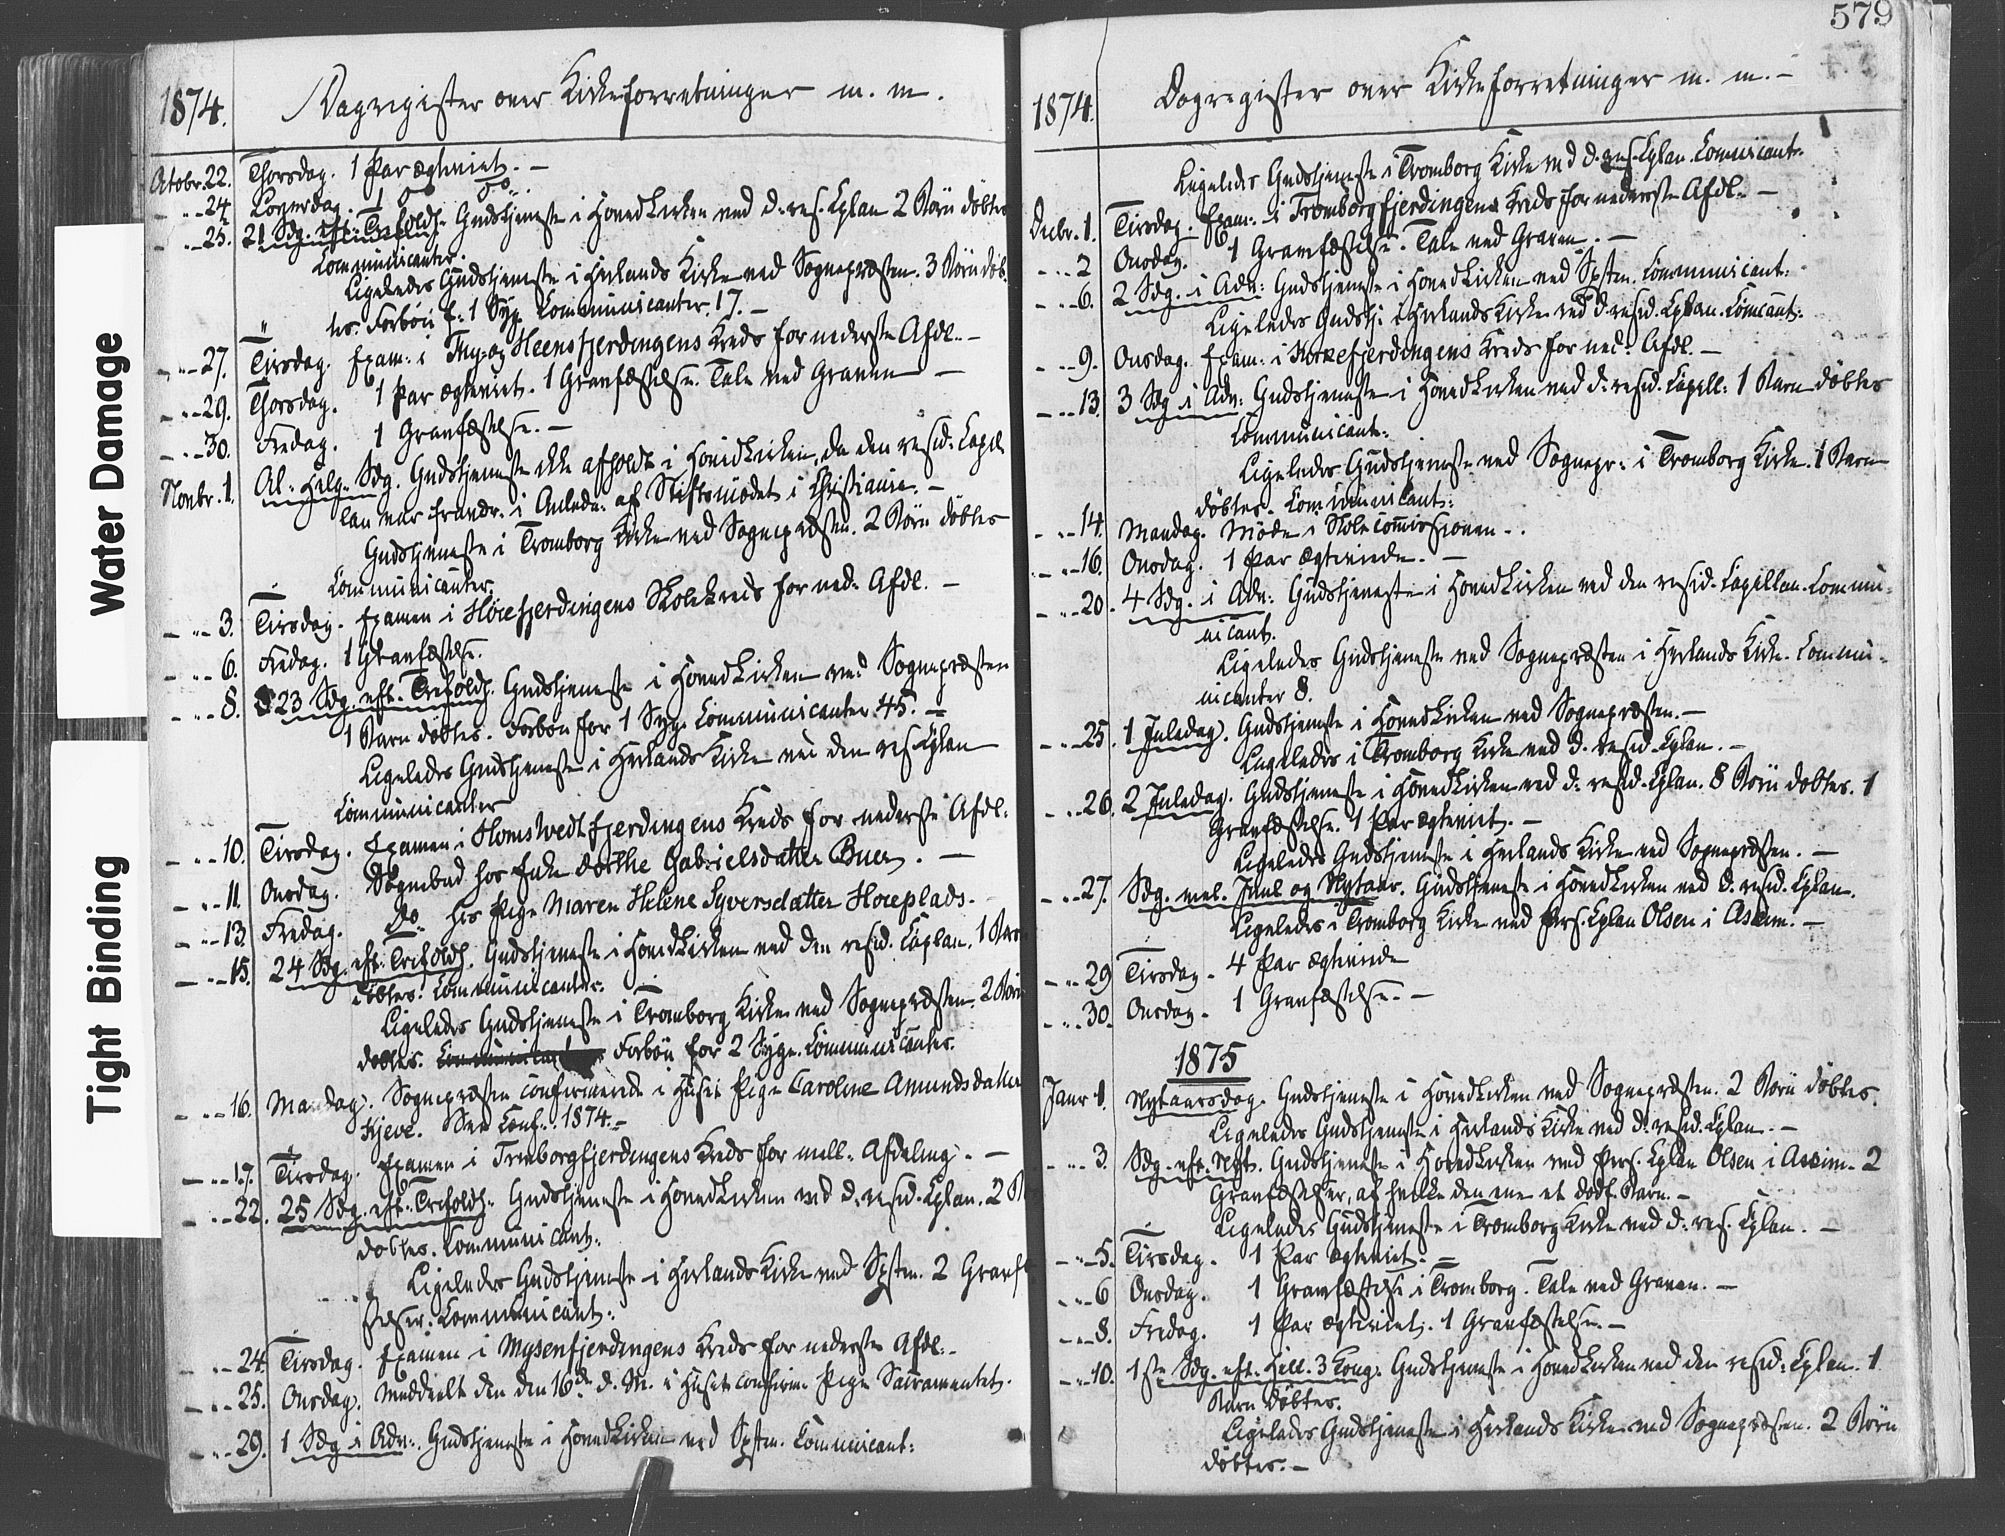 Water Damage
Tight Binding
1874. Dagregister over Kirkeforretninger m. m.
Octobr. 22. Thorsdag. 1 Par ægteviet. —
— „ — 24 Løverdag. 1 do do.
— „ — 25. 21 Sdg. eft. Trefoldh. Gudstjeneste i Hovedkirken ved d. res. Cplan 2 Børn døbtes
Communicanter.
Ligeledes Gudstjeneste i Herlands Kirke ved Sognepræsten. 3 Børn døb-
tes. Forbøn f. 1 Syg. Communicanter 17. —
— „ — 27. Tirsdag. Exam: i Ny- og Heensfjerdingens Kreds for nederste Afdl. —
— „ — 29. Thorsdag. 1 Par ægteviet. 1 Gravfæstelse. Tale ved Graven —
— „ — 30. Fredag. 1 Gravfæstelse. —
Novbr. 1. Al: Helg. Sdg. Gudstjeneste ikke afholdt i Hovedkirken, da den resid: Capel
lan var fravær: i Anledn: af Stiftsmødet i Christiania. —
Gudstjeneste i Tromborg Kirke ved Sognepræsten. 2 Børn døbtes
Communicanter.
— „ — 3. Tirsdag. Examen i Høiefjerdingens Skolekreds for ned. Afdl. —
— „ — 6. Fredag. 1 Gravfæstelse.
— „ — 8. 23 Sdg. eft. Trefoldh. Gudstjeneste i Hovedkirken ved Sognepræsten
1 Barn døbtes. Forbøn for 1 Syg. Communicanter 45. —
Ligeledes Gudstjeneste i Herlands Kirke ved den res. Cplan
Communicanter
— „ — 10. Tirsdag. Examen i Homstvedtfjerdingens Kreds for nederste Afdl.
— „ — 11. Onsdag. Sognebud hos Enke Dorthe Gabrielsdatter Buer. —
— „ — 13. Fredag. Do hos Pige Maren Helene Syversdatter Hoieplads. —
— „ — 15. 24 Sdg. eft. Trefoldh. Gudstjeneste i Hovedkirken ved den resid. Caplan. 1 Barn
døbtes. Communicanter. —
Ligeledes Gudstjeneste i Tromborg Kirke ved Sognepræsten. 2 Børn
døbtes. Forbøn for 2 Syge. Communicanter.
— „ — 16. Mandag. Sognepræsten confirmerede i Huset Pige Caroline Amundsdatter
Kjeve. See Conf. 1874. —
— „ — 17. Tirsdag. Examen i Tromborgfjerdingens Kreds for mell. Afdeling. —
— „ — 22. 25 Sdg. eft. Trefoldh. Gudstjeneste i Hovedkirken ved d. resid. Cplan. 2 B
døbtes. Communicant:
Ligeledes Gudstjeneste i Herlands Kirke ved Spstn. 2 Gravf
stelser. Communicant:
— „ — 24. Tirsdag. Examen i Mysenfjerdingens Kreds for nederste Afdl. —
— „ — 25. Onsdag. Meddeelt den den 16de d. M. i Huset confirm. Pige Sacramentet.
— „ — 29. 1 Sdg i Adv. Gudstjeneste i Hovedkirken ved Spstn. Communicant:
579
1874. Dagregister over Kirkeforretninger m. m. —
Ligeledes Gudstjeneste i Tromborg Kirke ved d. res. Cplan. Communicant.
Decbr. 1. Tirsdag. Exam. i Tromborgfjerdingens Kreds for nederste Afdl. —
— „ — 2 Onsdag. 1 Gravfæstelse. Tale ved Graven. —
— „ — 6. 2 Sdg. i Adv: Gudstjeneste i Hovedkirken ved Spstn. Communicant:
Ligeledes Gudstj: i Herlands Kirke ved d. resid. Cplan. Comcant:
— „ — 9. Onsdag. Exam: i Kirkefjerdingens Kreds for ned: Afdl. —
— „ — 13 3 Sdg i Adv: Gudstjeneste i Hovedkirken ved d. resid. Capell: 1 Barn døbtes
Communicant:
Ligeledes Gudstjeneste ved Sognepr: i Tromborg Kirke. 1 Barn
døbtes. Communicant:
— „ — 14. Mandag. Møde i Skolecommissionen. —
— „ — 16. Onsdag. 1 Par ægteviede. —
— „ — 20. 4 Sdg. i Adv: Gudstjeneste i Hovedkirken ved den resid. Capellan. Commu-
nicant.
Ligeledes Gudstjeneste ved Sognepræsten i Herlands Kirke. Commu-
nicanter 8.
— „ — 25. 1 Juledag. Gudstjeneste i Hovedkirken ved Sognepræsten. —
Ligeledes i Tromborg Kirke ved d. resid. Cplan. —
— „ — 26. 2 Juledag. Gudstjeneste i Hovedkirken ved d: resid. Cplan. 8 Børn døbtes. 1
Gravfæstelse. 1 Par ægteviet. —
Ligeledes Gudstjeneste i Herlands Kirke ved Sognepræsten. —
— „ — 27. Sdg. mel. Juul og Nytaar. Gudstjeneste i Hovedkirken ved d. resid. Cplan.
Ligeledes i Tromborg Kirke ved Pers. Cplan Olsen i Askim. —
— „ — 29 Tirsdag. 4 Par ægteviede
— „ — 30. Onsdag. 1 Gravfæstelse. —
1875
Janr 1. Nytaarsdag. Gudstjeneste i Hovedkirken ved Sognepræsten. 2 Børn døbtes.
Ligeledes Gudstjeneste i Herlands Kirke ved d. resid. Cplan. —
— „ — 3. Sdg. eft. Nyt. Gudstjeneste i Hovedkirken ved Pers. Cplan Olsen i Askim. 2
Gravfæstelser, af hvilke den ene et dødf. Barn. —
Ligeledes Gudstjeneste i Tromborg Kirke ved d. res. Cplan. —
— „ — 5. Tirsdag. 1 Par ægteviet. —
— „ — 6 Onsdag. 1 Gravfæstelse i Tromborg. Tale ved Graven. —
— „ — 8. Fredag. 1 Par ægteviet. 1 Gravfæstelse. —
— „ — 10. 1ste Sdg. eft. Hell. 3 Kong. Gudstjeneste i Hovedkirken ved den resid: Cplan. 1
Barn døbtes.
Ligeledes Gudstjeneste i Herlands Kirke ved Sognepræsten. 2 Børn
døbtes. —